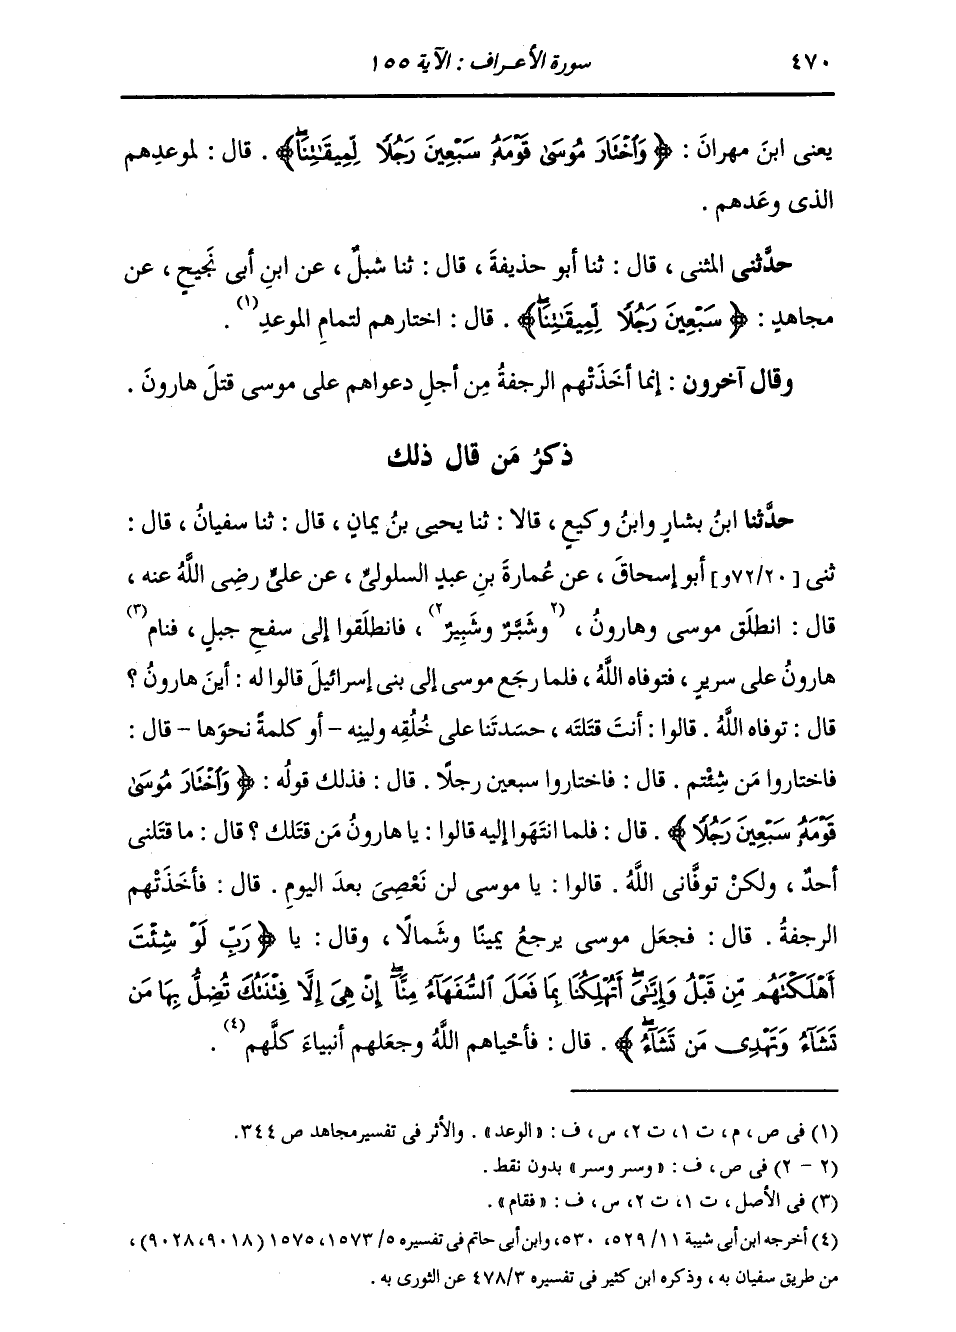 ٤٧٠ سورة الأعراف : الآية ١٥٥
يعنى ابنَ مهرانَ : ﴿ وَٱخْتَارَ مُوسَىٰ قَوْمَهُۥ سَبْعِينَ رَجُلًا لِّمِيقَٰتِنَاۖ﴾ . قال : لموعدِهم
الذى وعَدهم .
حدَّثنى المثنى ، قال : ثنا أبو حذيفةَ ، قال : ثنا شبلٌ ، عن ابنِ أبى نَجيحٍ ، عن
مجاهدٍ : ﴿ سَبْعِينَ رَجُلًا لِّمِيقَٰتِنَاۖ﴾ . قال : اختارهم لتمامِ الموعدِ(١) .
وقال آخرون : إنما أخَذَتْهم الرجفةُ مِن أجلِ دعواهم على موسى قتلَ هارونَ .
ذكرُ مَن قال ذلك
حدَّثنا ابنُ بشارٍ وابنُ وكيعٍ ، قالا : ثنا يحيى بنُ يمانٍ ، قال : ثنا سفيانُ ، قال :
ثنى [٧٢/٢٠و] أبو إسحاقَ ، عن عُمارةَ بنِ عبدٍ السلولىِّ ، عن علىٍّ رضِى اللَّهُ عنه ،
قال : انطلَق موسى وهارونُ ، (٢ وشَبَّرٌ وشَبِيرٌ ٢) ، فانطلَقوا إلى سفحِ جبلٍ ، فنام(٣)
هارونُ على سريرٍ ، فتوفاه اللَّهُ ، فلما رجَع موسى إلى بنى إسرائيلَ قالوا له : أينَ هارونُ ؟
قال : توفاه اللَّهُ . قالوا : أنتَ قتَلتَه ، حسَدتَنا على خُلُقِه ولينِه – أو كلمةً نحوَها – قال :
فاختاروا مَن شِئْتم . قال : فاختاروا سبعين رجلًا . قال : فذلك قولُه : ﴿ وَٱخْتَارَ مُوسَىٰ
قَوْمَهُۥ سَبْعِينَ رَجُلًا ﴾ . قال : فلما انتَهَوا إليه قالوا : يا هارونُ مَن قتَلك ؟ قال : ما قتَلنى
أحدٌ ، ولكنْ توفَّانى اللَّهُ . قالوا : يا موسى لن نَعْصِىَ بعدَ اليومِ . قال : فأخَذَتْهم
الرجفةُ . قال : فجعَل موسى يرجعُ يمينًا وشَمالًا ، وقال : يا ﴿ رَبِّ لَوْ شِئْتَ
أَهْلَكْتَهُم مِّن قَبْلُ وَإِيَّٰىَۖ أَتُهْلِكُنَا بِمَا فَعَلَ ٱلسُّفَهَآءُ مِنَّآۖ إِنْ هِىَ إِلَّا فِتْنَتُكَ تُضِلُّ بِهَا مَن
تَشَآءُ وَتَهْدِى مَن تَشَآءُۖ ﴾ . قال : فأحْياهم اللَّهُ وجعَلهم أنبياءَ كلَّهم(٤) .
(١) فى ص ، م ، ت ١ ، ت ٢ ، س ، ف : «الوعد» . والأثر فى تفسير مجاهد ص ٣٤٤.
(٢ – ٢) فى ص ، ف : «وسر وسر» بدون نقط .
(٣) فى الأصل ، ت ١ ، ت ٢ ، س ، ف : «فقام» .
(٤) أخرجه ابن أبى شيبة ١١/ ٥٢٩، ٥٣٠، وابن أبى حاتم فى تفسيره ٥/ ١٥٧٣، ١٥٧٥ (٩٠١٨، ٩٠٢٨) ،
من طريق سفيان به ، وذكره ابن كثير فى تفسيره ٤٧٨/٣ عن الثورى به .